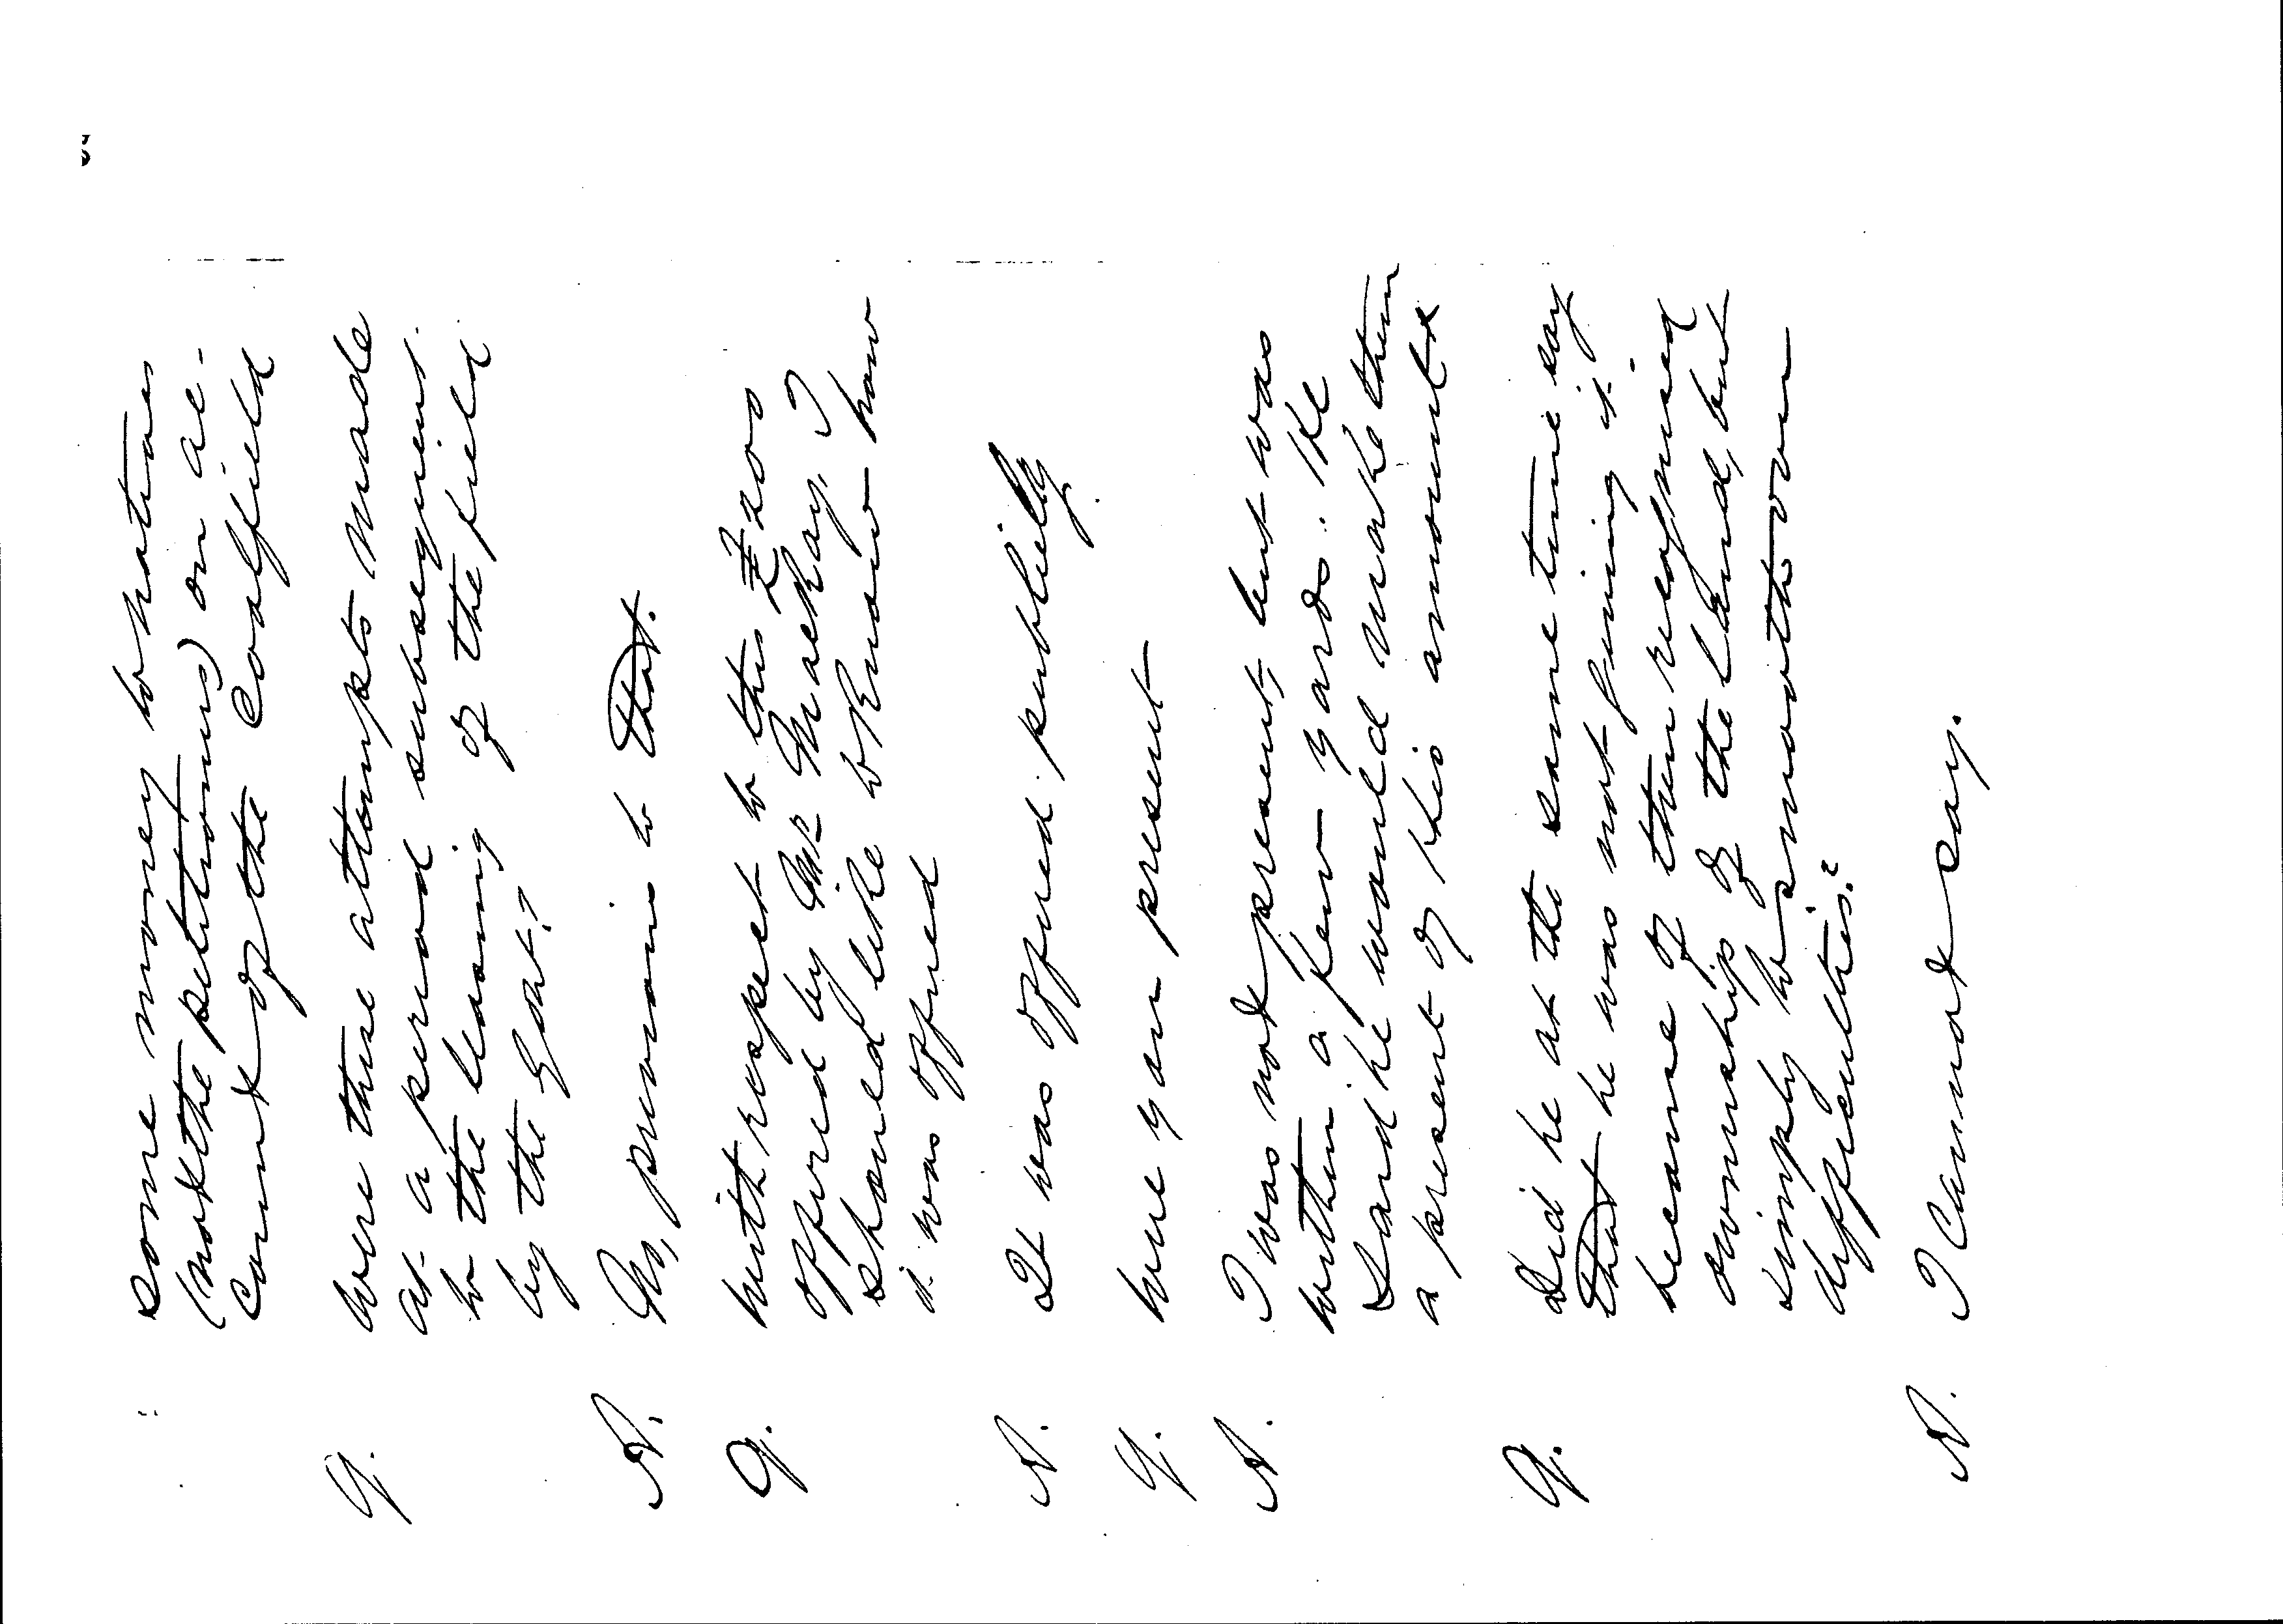 some money to natives
(not the petitioners) on ac-
count of the Coalfield
Q. Were these attempts made
at a period subsequent
to the leasing of the field
by the Govt?
A. No, previous to that.
Q. With respect to this £200
offered by Mr Mackay, I
should like to know how
it was offered
A. It was offered publicly.
Q. Were you present
A. I was not present, but was
within a few yards. He
said he would make them
a present of this amount
Q. Did he at the same time say
that he was not giving it
because of their recognised
ownership of the land, but
simply to smooth over
difficulties?
A. I cannot say.